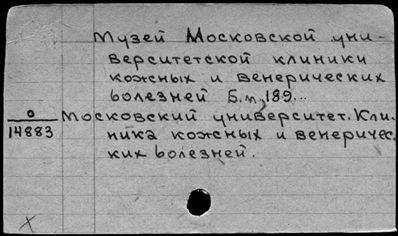 Музей Московской уни-
верситетской клиники
кожных и венерических
болезней Б.м,189...
О
14883
Московский университет. Кли-
ника кожных и венеричес.
ких болезней.
X